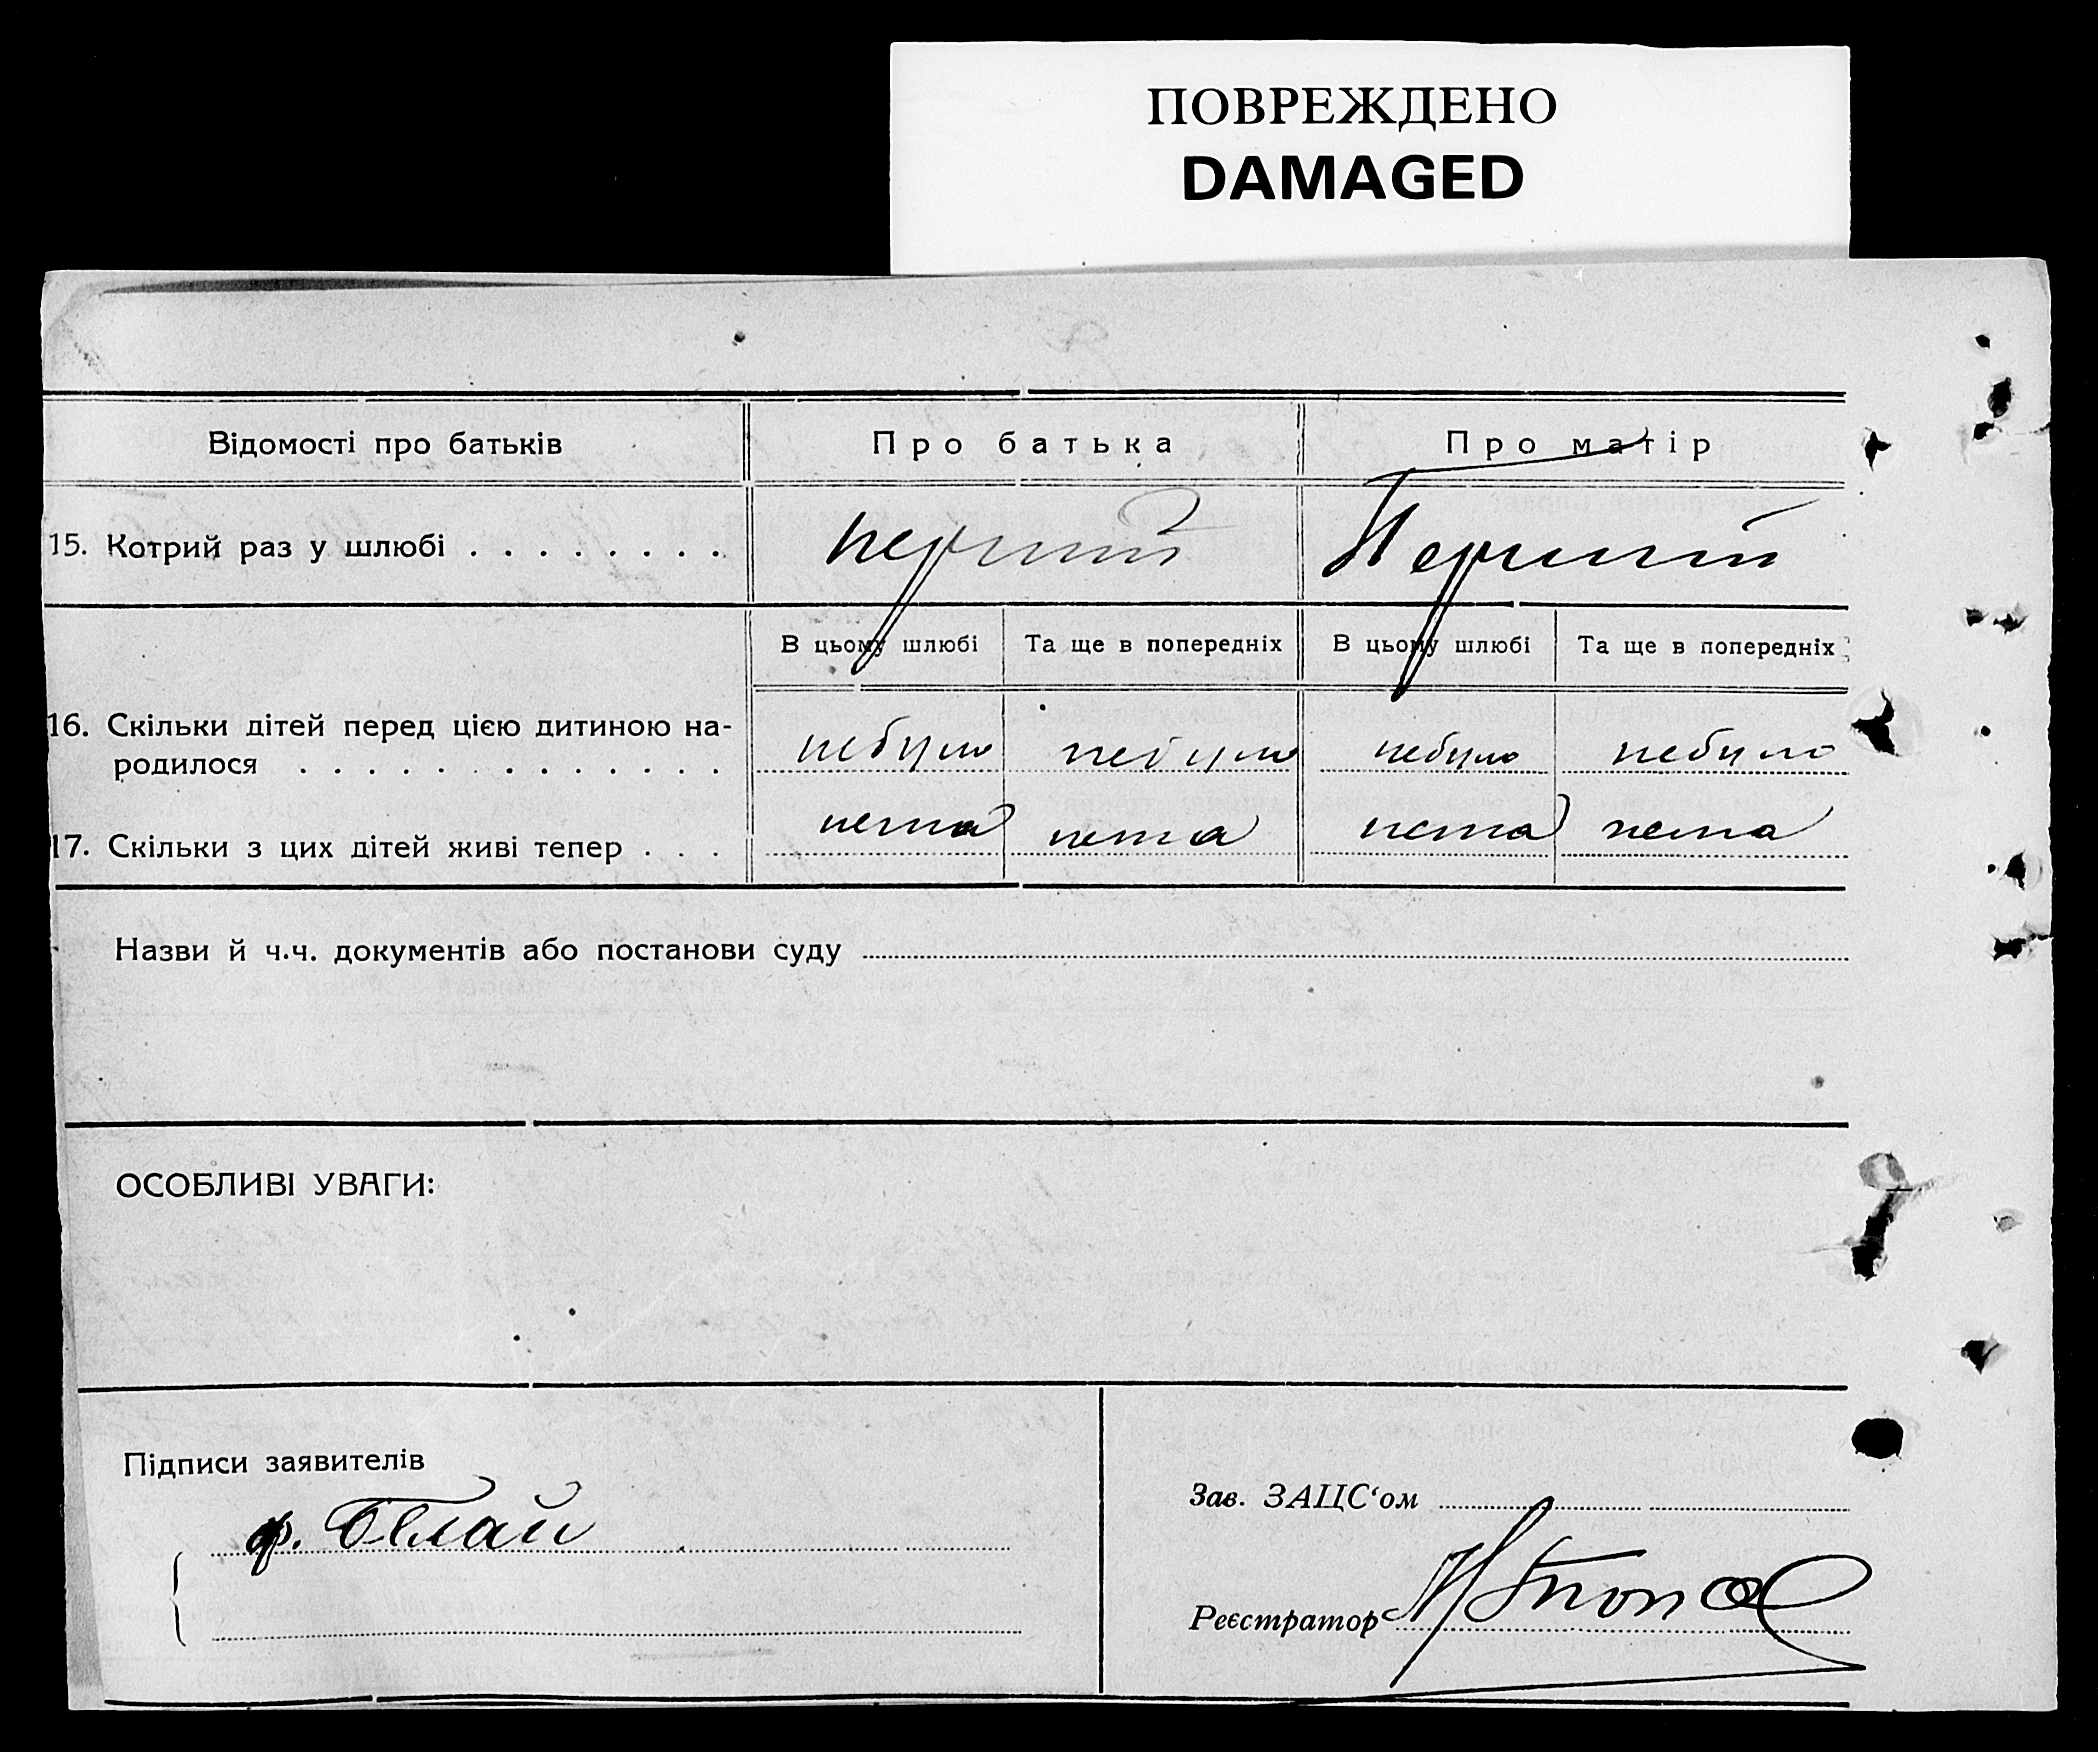 ПОВРЕЖДЕНО
DAMAGED
Відомості про батьків
Про батька
Про матір
15. Котрий раз у шлюбі . . . . . . . .
перший
Перший
В цьому шлюбі
Та ще в попередніх
В цьому шлюбі
Та ще в попередніх
16. Скільки дітей перед цією дитиною на-
родилося . . . . . . . . . . . . .
небуло
небуло
небуло
небуло
17. Скільки з цих дітей живі тепер . . .
нема
нема
нема
нема
Назви й ч.ч. документів або постанови суду
ОСОБЛИВІ УВАГИ:
Підписи заявителів
ф.
Зав. ЗАЦС‘ом
Реєстратор